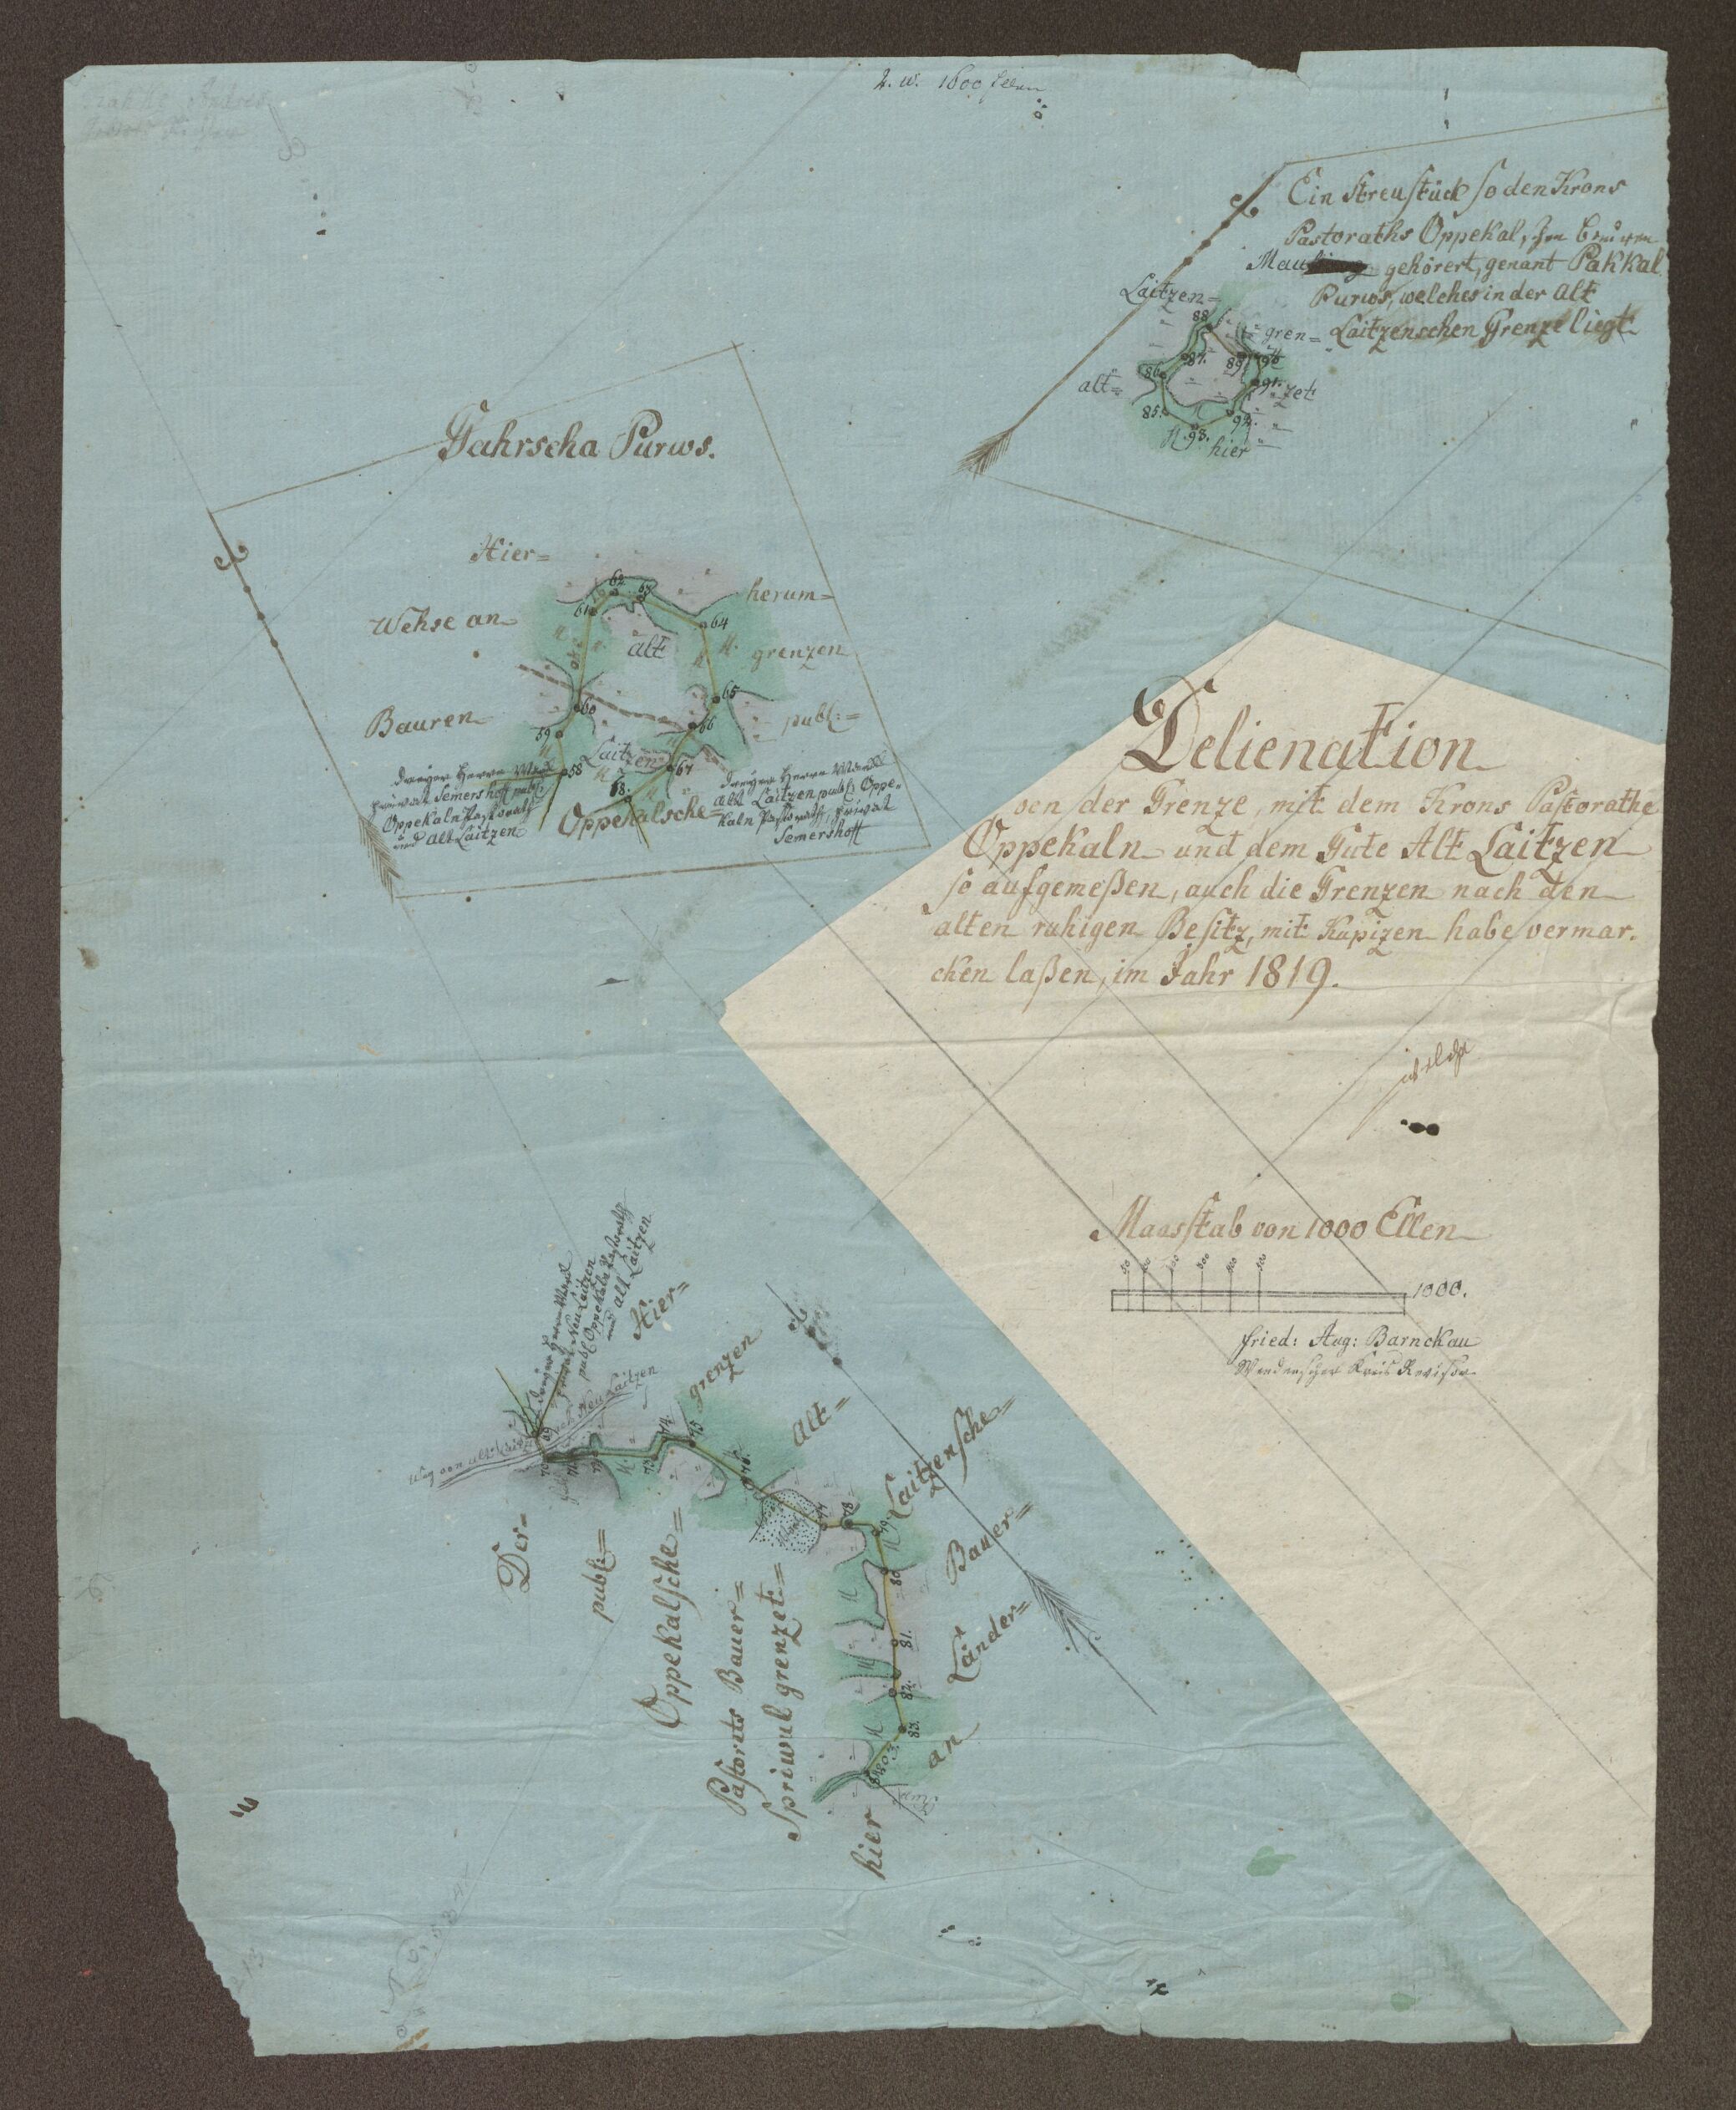 1600 Ellen
Ein Streustück so den Krons
Pastoraths Oppekalschen
gehörert, genant Pakkal
Purws, welches in der Alt
Laitzenschen Grenze liegt.
Laitzen=
gren=
alt=
zet
hier
88
87.
89
90
86
91.
85.
92.
93.
Jahrscha Purws.
Hier=
herum=
Wehse an
grenzen
Bauren
publ:=
62
63
61
64
alt
65
60
66
59
Laitzen
58
67
68.
Oppekalsche=
dreyer Herrn
privat Semershoff publ:
Oppekaln Pastorath
und Alt Laitzen
dreyer Herrn
Alt Laitzen publ: Oppe=
kaln Pastorath, privat
Semershoff
Delienation
von der Grenze, mit dem Krons Pastorathe
Oppekaln und dem Gute Alt Laitzen
so aufgemeßen, auch die Grenzen nach den
alten ruhigen Besitz, mit Kupizen habe vermar.
cken laßen, im Jahr 1819.
Maasstab von 1000 Ellen
1000.
Fried: Aug: Barnckau
Wendenscher Kreis Revisor
dreyer Herrn
privat Neu Laitzen
publ: Oppekaln Pastorath
und alt Laitzen
Weg von Alt Laitzen nach Neu Laitzen
Hier=
grenzen
Alt=
Laitzensche=
Bauer=
Länder=
an
hier
Der=
publ:=
Oppekalsche=
Pastorats Bauer=
Spriwul grenzet=
69
70
73
74.
75
76.
77
78
79.
80
81.
82.
83.
84